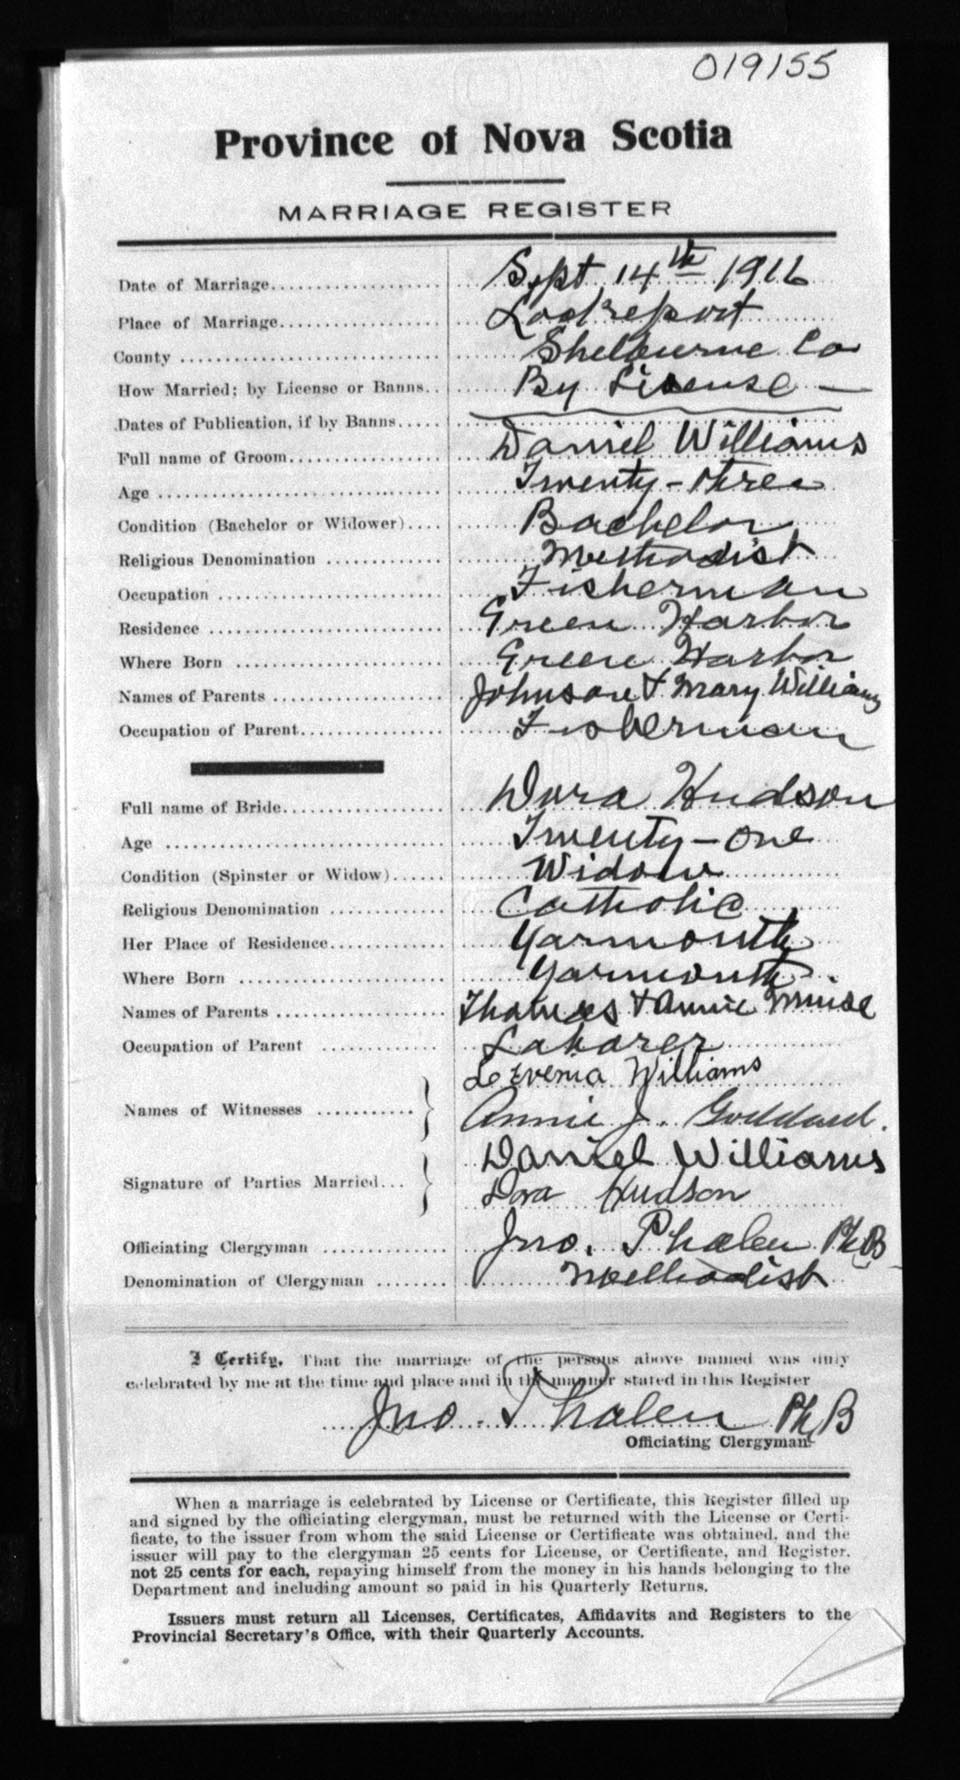 019155
Province of Nova Scotia
MARRIAGE REGISTER
Date of Marriage.................... Sept 14th 1916
Place of Marriage................... Lockeport
County .............................. Shelburne Co
How Married; by License or Banns.. By License —
Dates of Publication, if by Banns.....
Full name of Groom.................. Daniel Williams
Age ................................ Twenty-three
Condition (Bachelor or Widower).... Bachelor
Religious Denomination ............. Methodist
Occupation ......................... Fisherman
Residence .......................... Green Harbor
Where Born ......................... Green Harbor
Names of Parents ................... Johnson & Mary Williams
Occupation of Parent................ Fisherman
Full name of Bride................... Dora Hudson
Age ................................ Twenty-one
Condition (Spinster or Widow)...... Widow
Religious Denomination ............. Catholic
Her Place of Residence.............. Yarmouth
Where Born ......................... Yarmouth
Names of Parents ................... Thomas & Annie Muise
Occupation of Parent ............... Laborer
Names of Witnesses ........... Williams
Annie J. Goddard.
Signature of Parties Married... Daniel Williams
Dora Hudson
Officiating Clergyman .............. Jno. Phalen Ph B
Denomination of Clergyman ........ Methodist
I Certify, That the marriage of the persons above named was duly
celebrated by me at the time and place and in the manner stated in this Register
Jno. Phalen Ph B
Officiating Clergyman
When a marriage is celebrated by License or Certificate, this Register filled up
and signed by the officiating clergyman, must be returned with the License or Certi-
ficate, to the issuer from whom the said License or Certificate was obtained, and the
issuer will pay to the clergyman 25 cents for License, or Certificate, and Register,
not 25 cents for each, repaying himself from the money in his hands belonging to the
Department and including amount so paid in his Quarterly Returns.
Issuers must return all Licenses, Certificates, Affidavits and Registers to the
Provincial Secretary's Office, with their Quarterly Accounts.